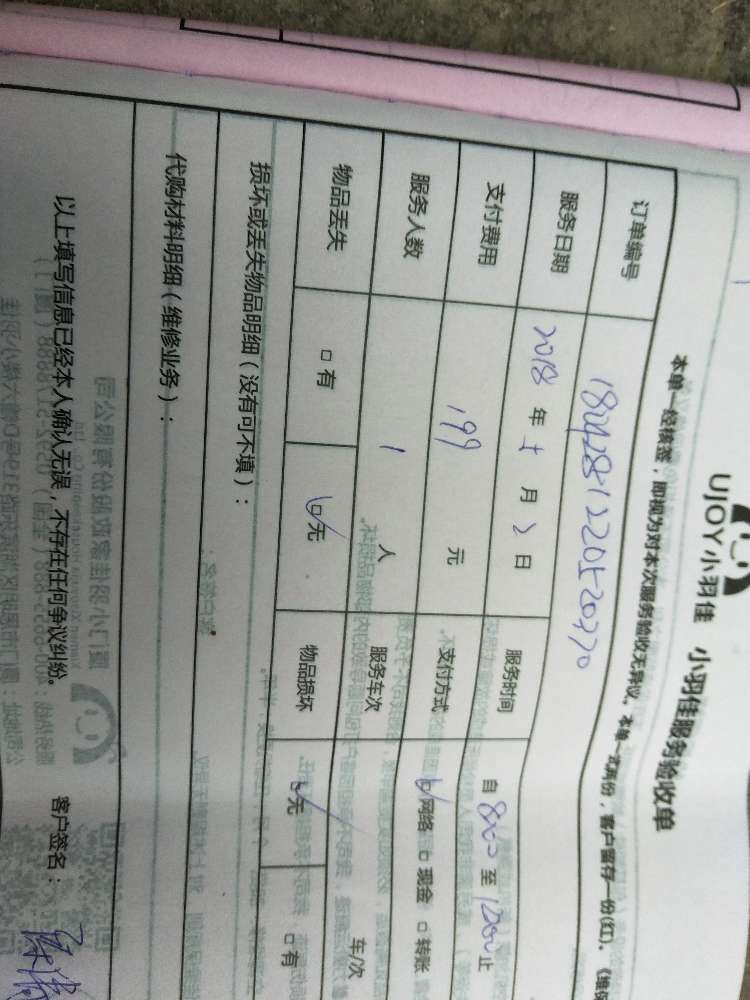 UJOY小羽佳 小羽佳服务验收单
本单一经核签，即视为对本次服务验收无异议。本单一式两份，客户留存一份(红)，（维修
订单编号
服务日期 2018 年 5 月 2 日 服务时间 自 8:00 至 12:00 止
支付费用 199 元 支付方式 ☑网络 □现金 □转账
服务人数 1 人 服务车次 车/次
物品丢失 □有 ☑无 物品损坏 ☑无 □有
损坏或丢失物品明细（没有可不填）：
代购材料明细（维修业务）：
以上填写信息已经本人确认无误，不存在任何争议纠纷。 客户签名：